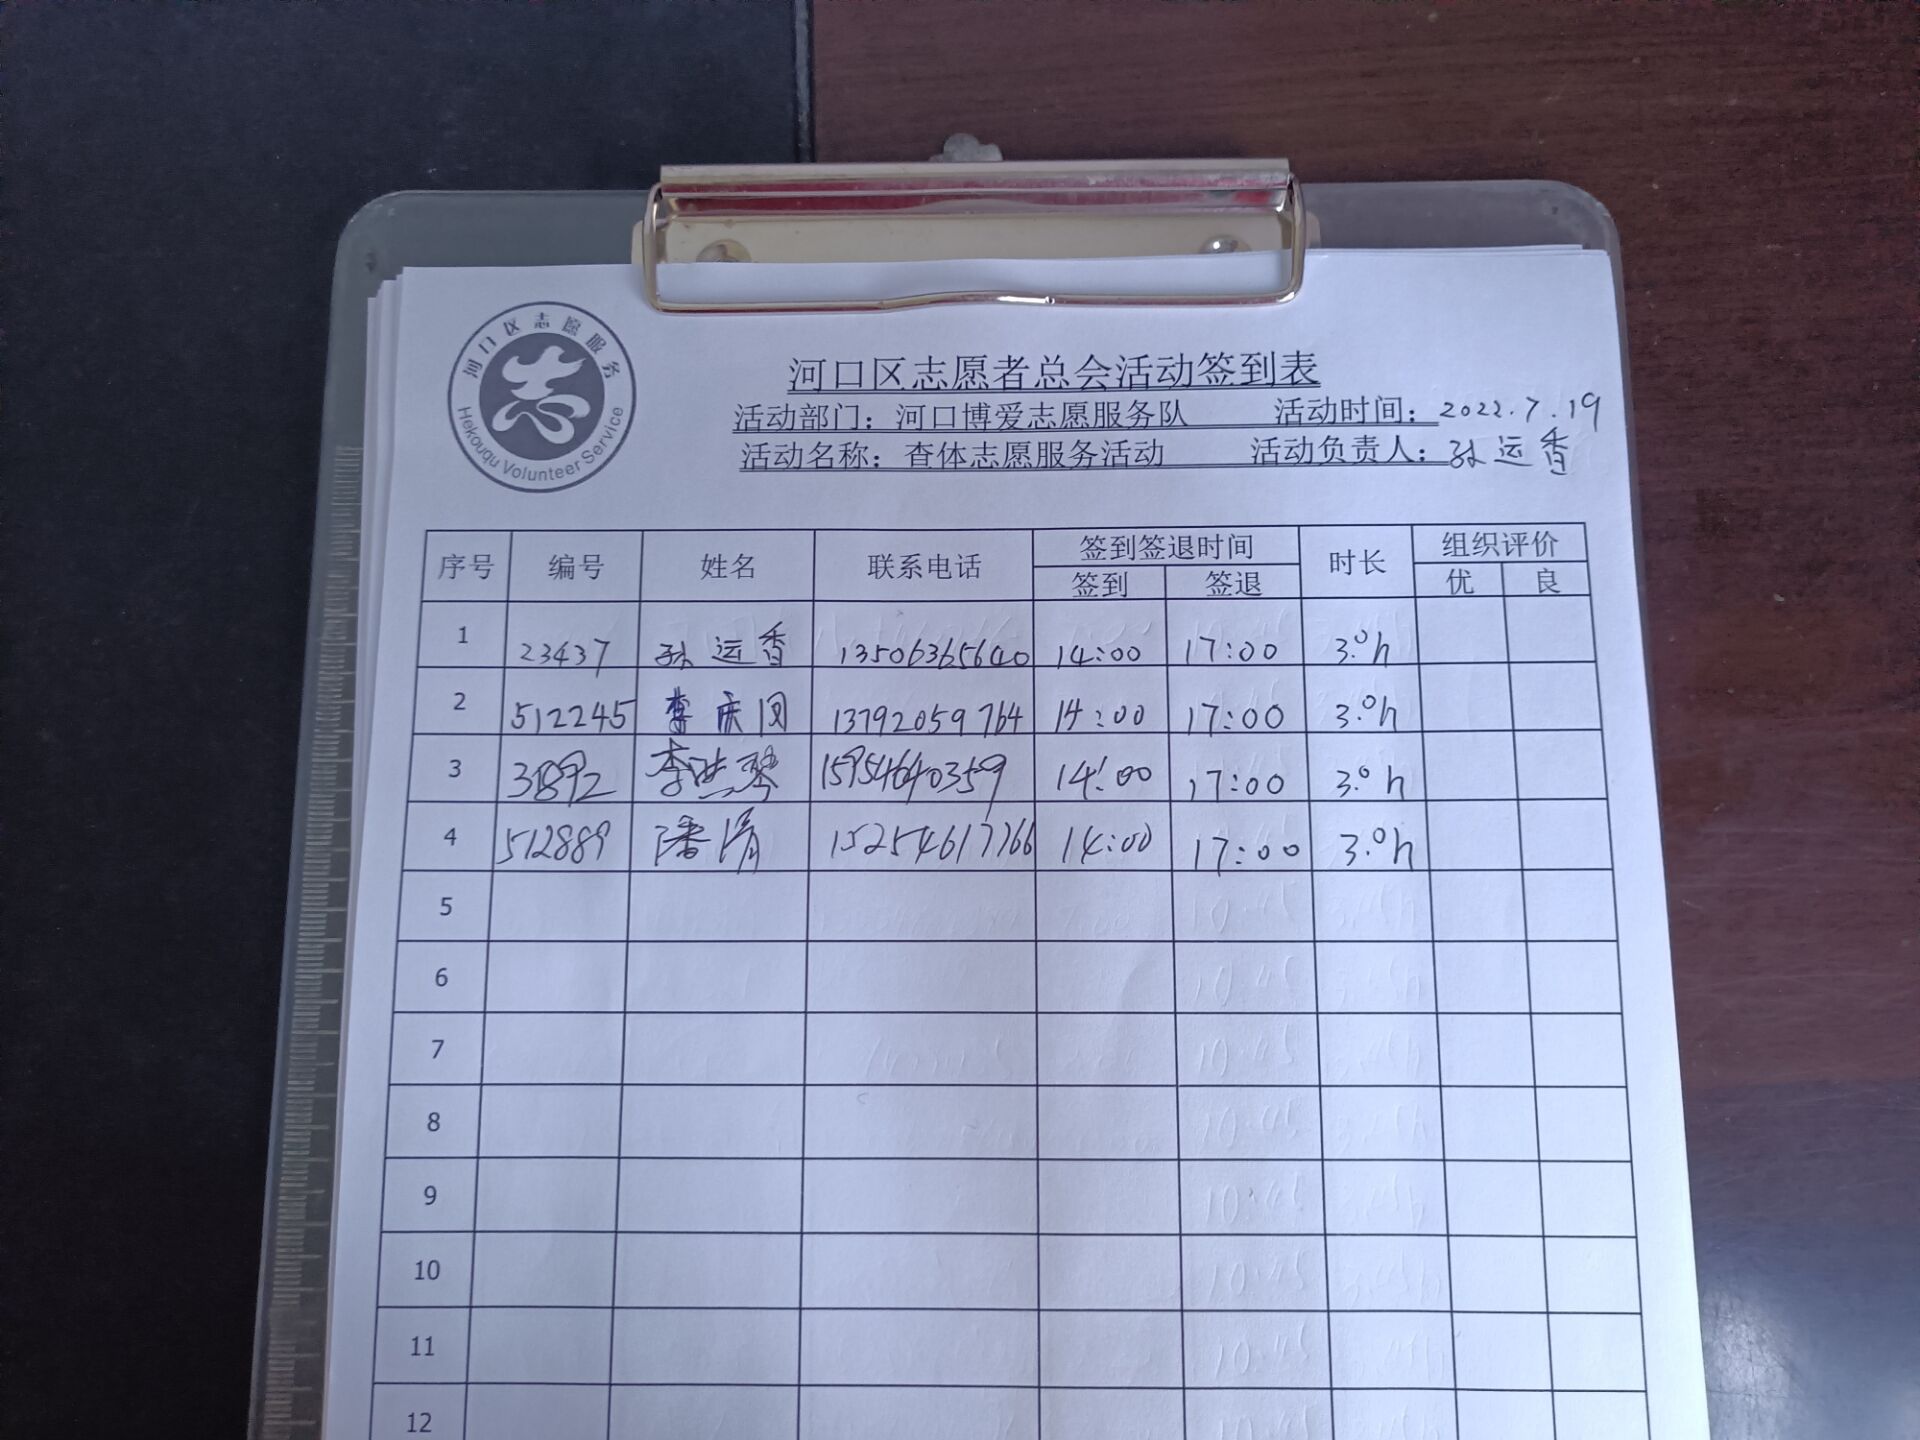 河口区志愿服务
Hekouqu Volunteer Service
河口区志愿者总会活动签到表
活动部门：河口博爱志愿服务队 活动时间：2022.7.19
活动名称：查体志愿服务活动 活动负责人：孙运香
序号 编号 姓名 联系电话 签到签退时间 时长 组织评价
签到 签退 优 良
1 23437 孙运香 13506365640 14:00 17:00 3.0h
2 512245 李庆 13792059764 14:00 17:00 3.0h
3 31892 李洪琴 15954640359 14:00 17:00 3.0h
4 512889 潘 15254617766 14:00 17:00 3.0h
5
6
7
8
9
10
11
12